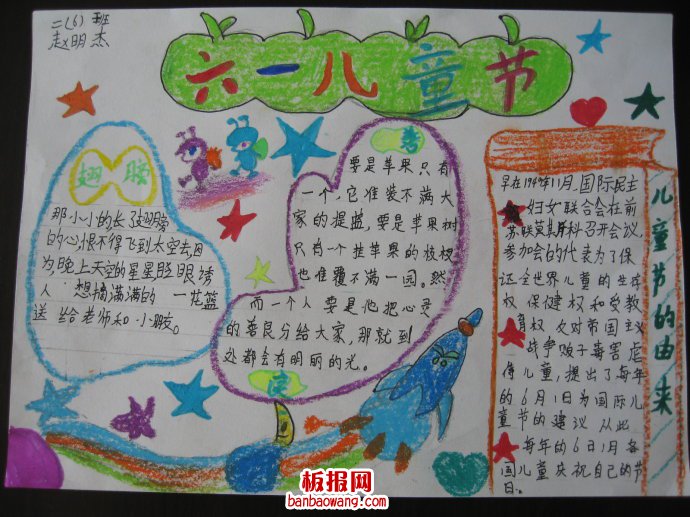 二(6)班
赵明杰
六一儿童节
翅膀
那小小的长了翅膀
的心恨不得飞到太空去,因
为,晚上天空的星星眨眼诱
人 想摘满满的 一花篮
送 给老师和小朋友。
要是苹果只有
一个,它准装不满大
家的提篮,要是苹果树
只有一个挂苹果的枝杈
也准覆不满一园。然
而一个人要是他把心灵
的善良分给大家,那就到
处都会有明丽的光。
早在1949年11月,国际民主
妇女联合会在前
苏联莫斯科召开会议,
参加会的代表为了保
证全世界儿童的生存
权 保健权和受教
育权 反对帝国主义
战争贩子毒害虐
待儿童,提出了每年
的6月1日为国际儿
童节的建议 从此
每年的6日1月各
国儿童庆祝自己的节
日。
儿童节的由来
板报网
banbaowang.com